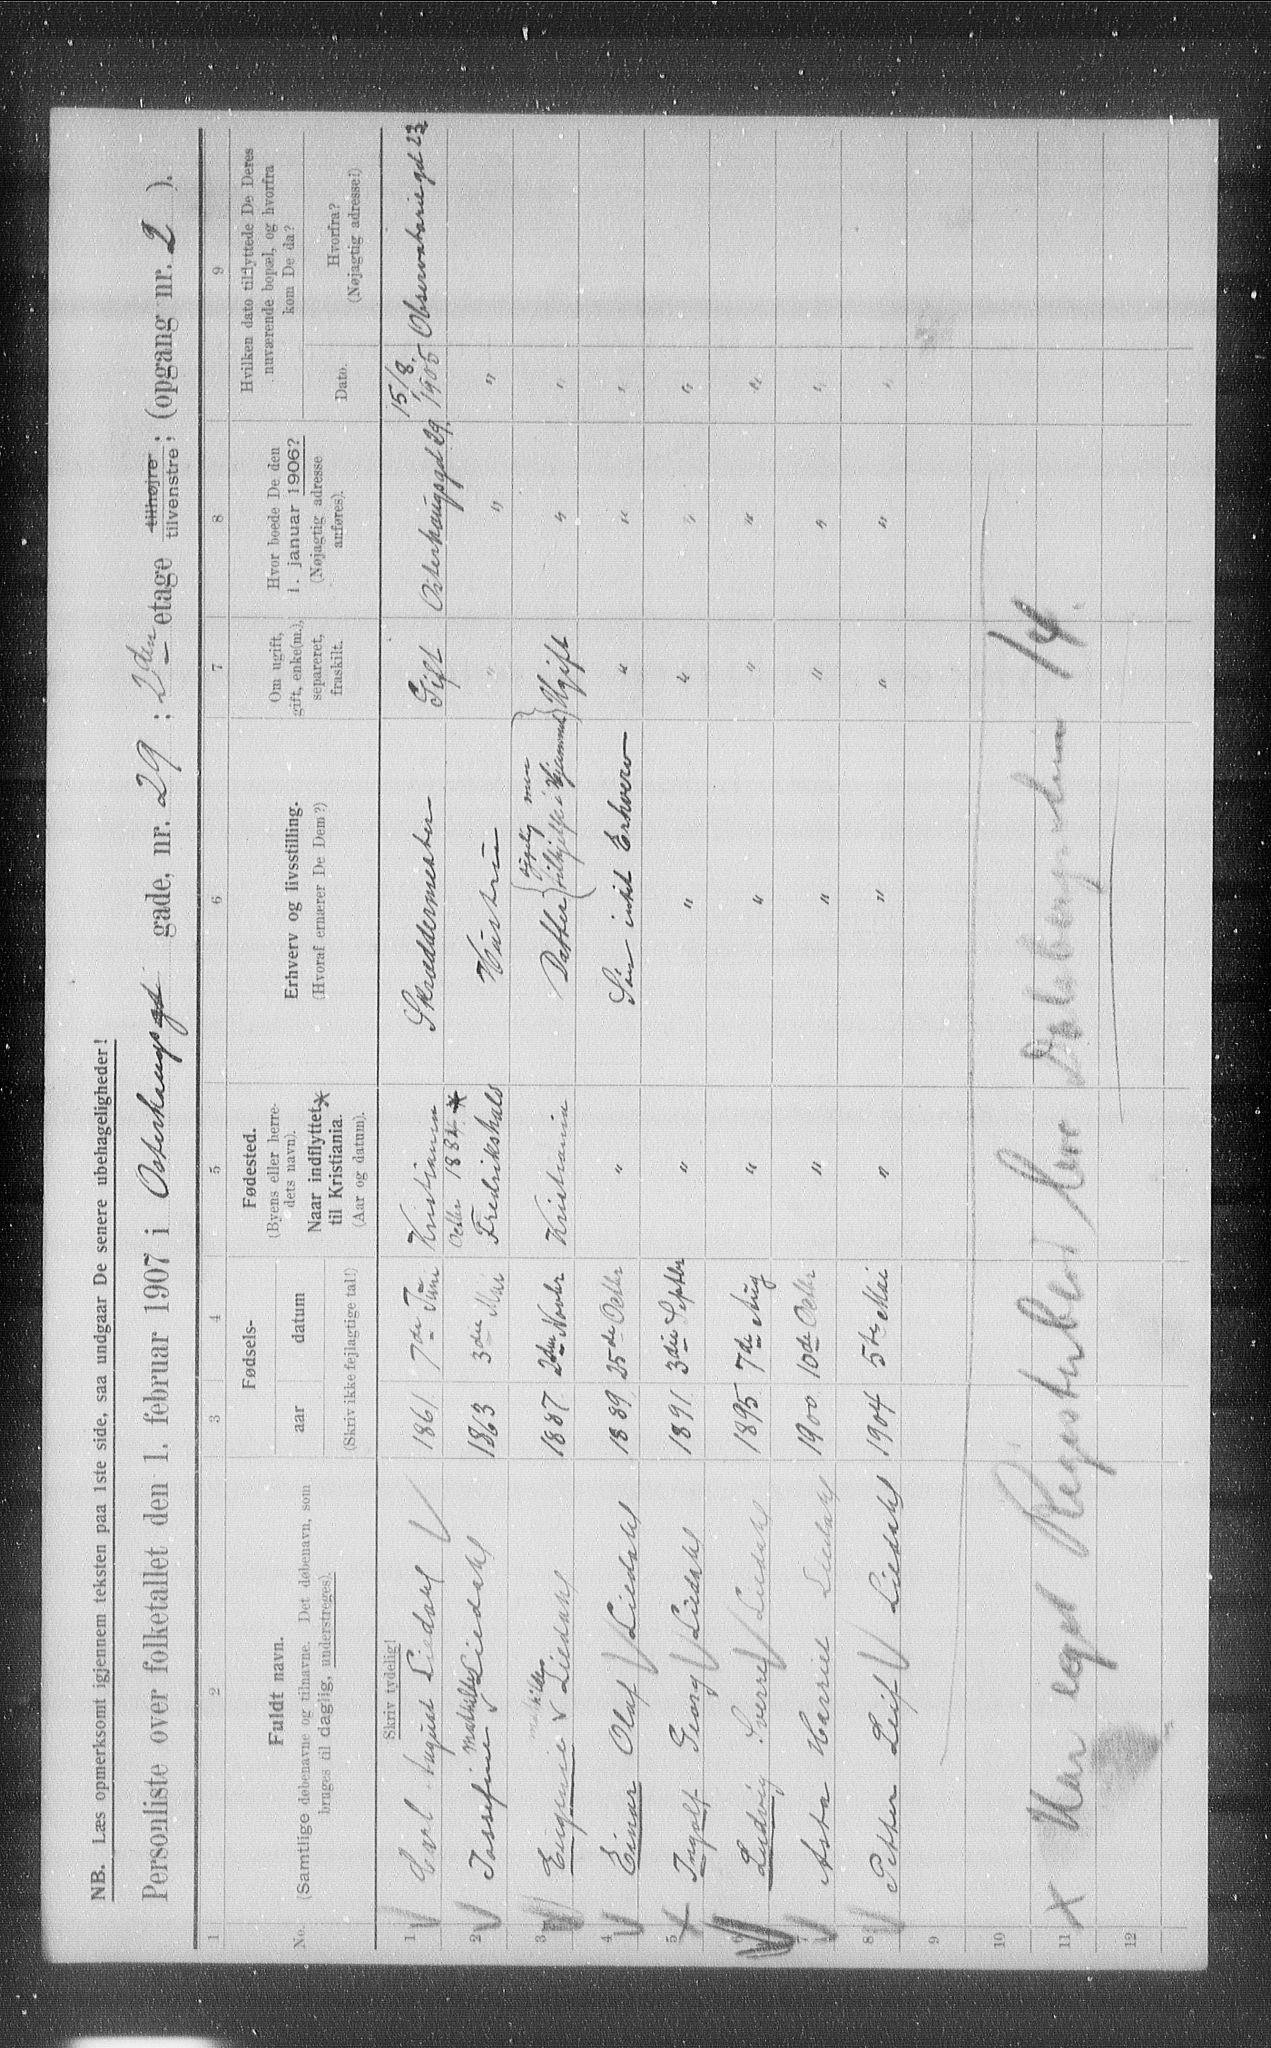 NB. Læs opmerksomt igjennem teksten paa 1ste side, saa undgaar De senere ubehageligheder!
Personliste over folketallet den 1. februar 1907 i Osterhaugsgd gade, nr. 29 : 2den etage tilhøjre tilvenstre; (opgang nr. 2 ).
1 2 3 4 5 6 7 8 9
No.
Fuldt navn.
(Samtlige døbenavne og tilnavne. Det døbenavn, som bruges til daglig, understreges).
Skriv tydelig!
Fødsels-
aar datum
(Skriv ikke fejlagtige tal!)
Fødested.
(Byens eller herredets navn).
Naar indflyttet til Kristiania.
(Aar og datum).
Erhverv og livsstilling.
(Hvoraf ernærer De Dem?)
Om ugift, gift, enke(m.), separeret, fraskilt.
Hvor boede De den 1. januar 1906?
(Nøjagtig adresse anføres).
Hvilken dato tilflyttede De Deres nuværende bopæl, og hvorfra kom De da?
Dato.
Hvorfra?
(Nøjagtig adresse!)
1 Carl August Liedahl 1861 7de Juni Kristiania Skræddermester Gift Osterhaugsgd 29. 15/8. 1905 Observatoriegd 23
2 Josefine Mathilde Liedahl 1863 3die Mai Octbr 1884. Fredrikshald Hustru " " "
3 Eugenie Liedahl 1887 2den Novbr Kristiania Datter sygelig men Ugift " "
4 Einar Olaf Liedahl 1889 25de Octbr " Søn intet Erhverv " " "
5 Ingolf Georg Liedahl 1891 3die Septbr " " " " "
6 Ludvig Sverre Liedahl 1895 7de Aug " " " " "
7 Asta Harriet Liedahl 1900 10de Octbr " " " " "
8 Petter Leif Liedahl 1904 5te Mai " " " " "
9
10
11 × Har eget Registerblad 14.
12